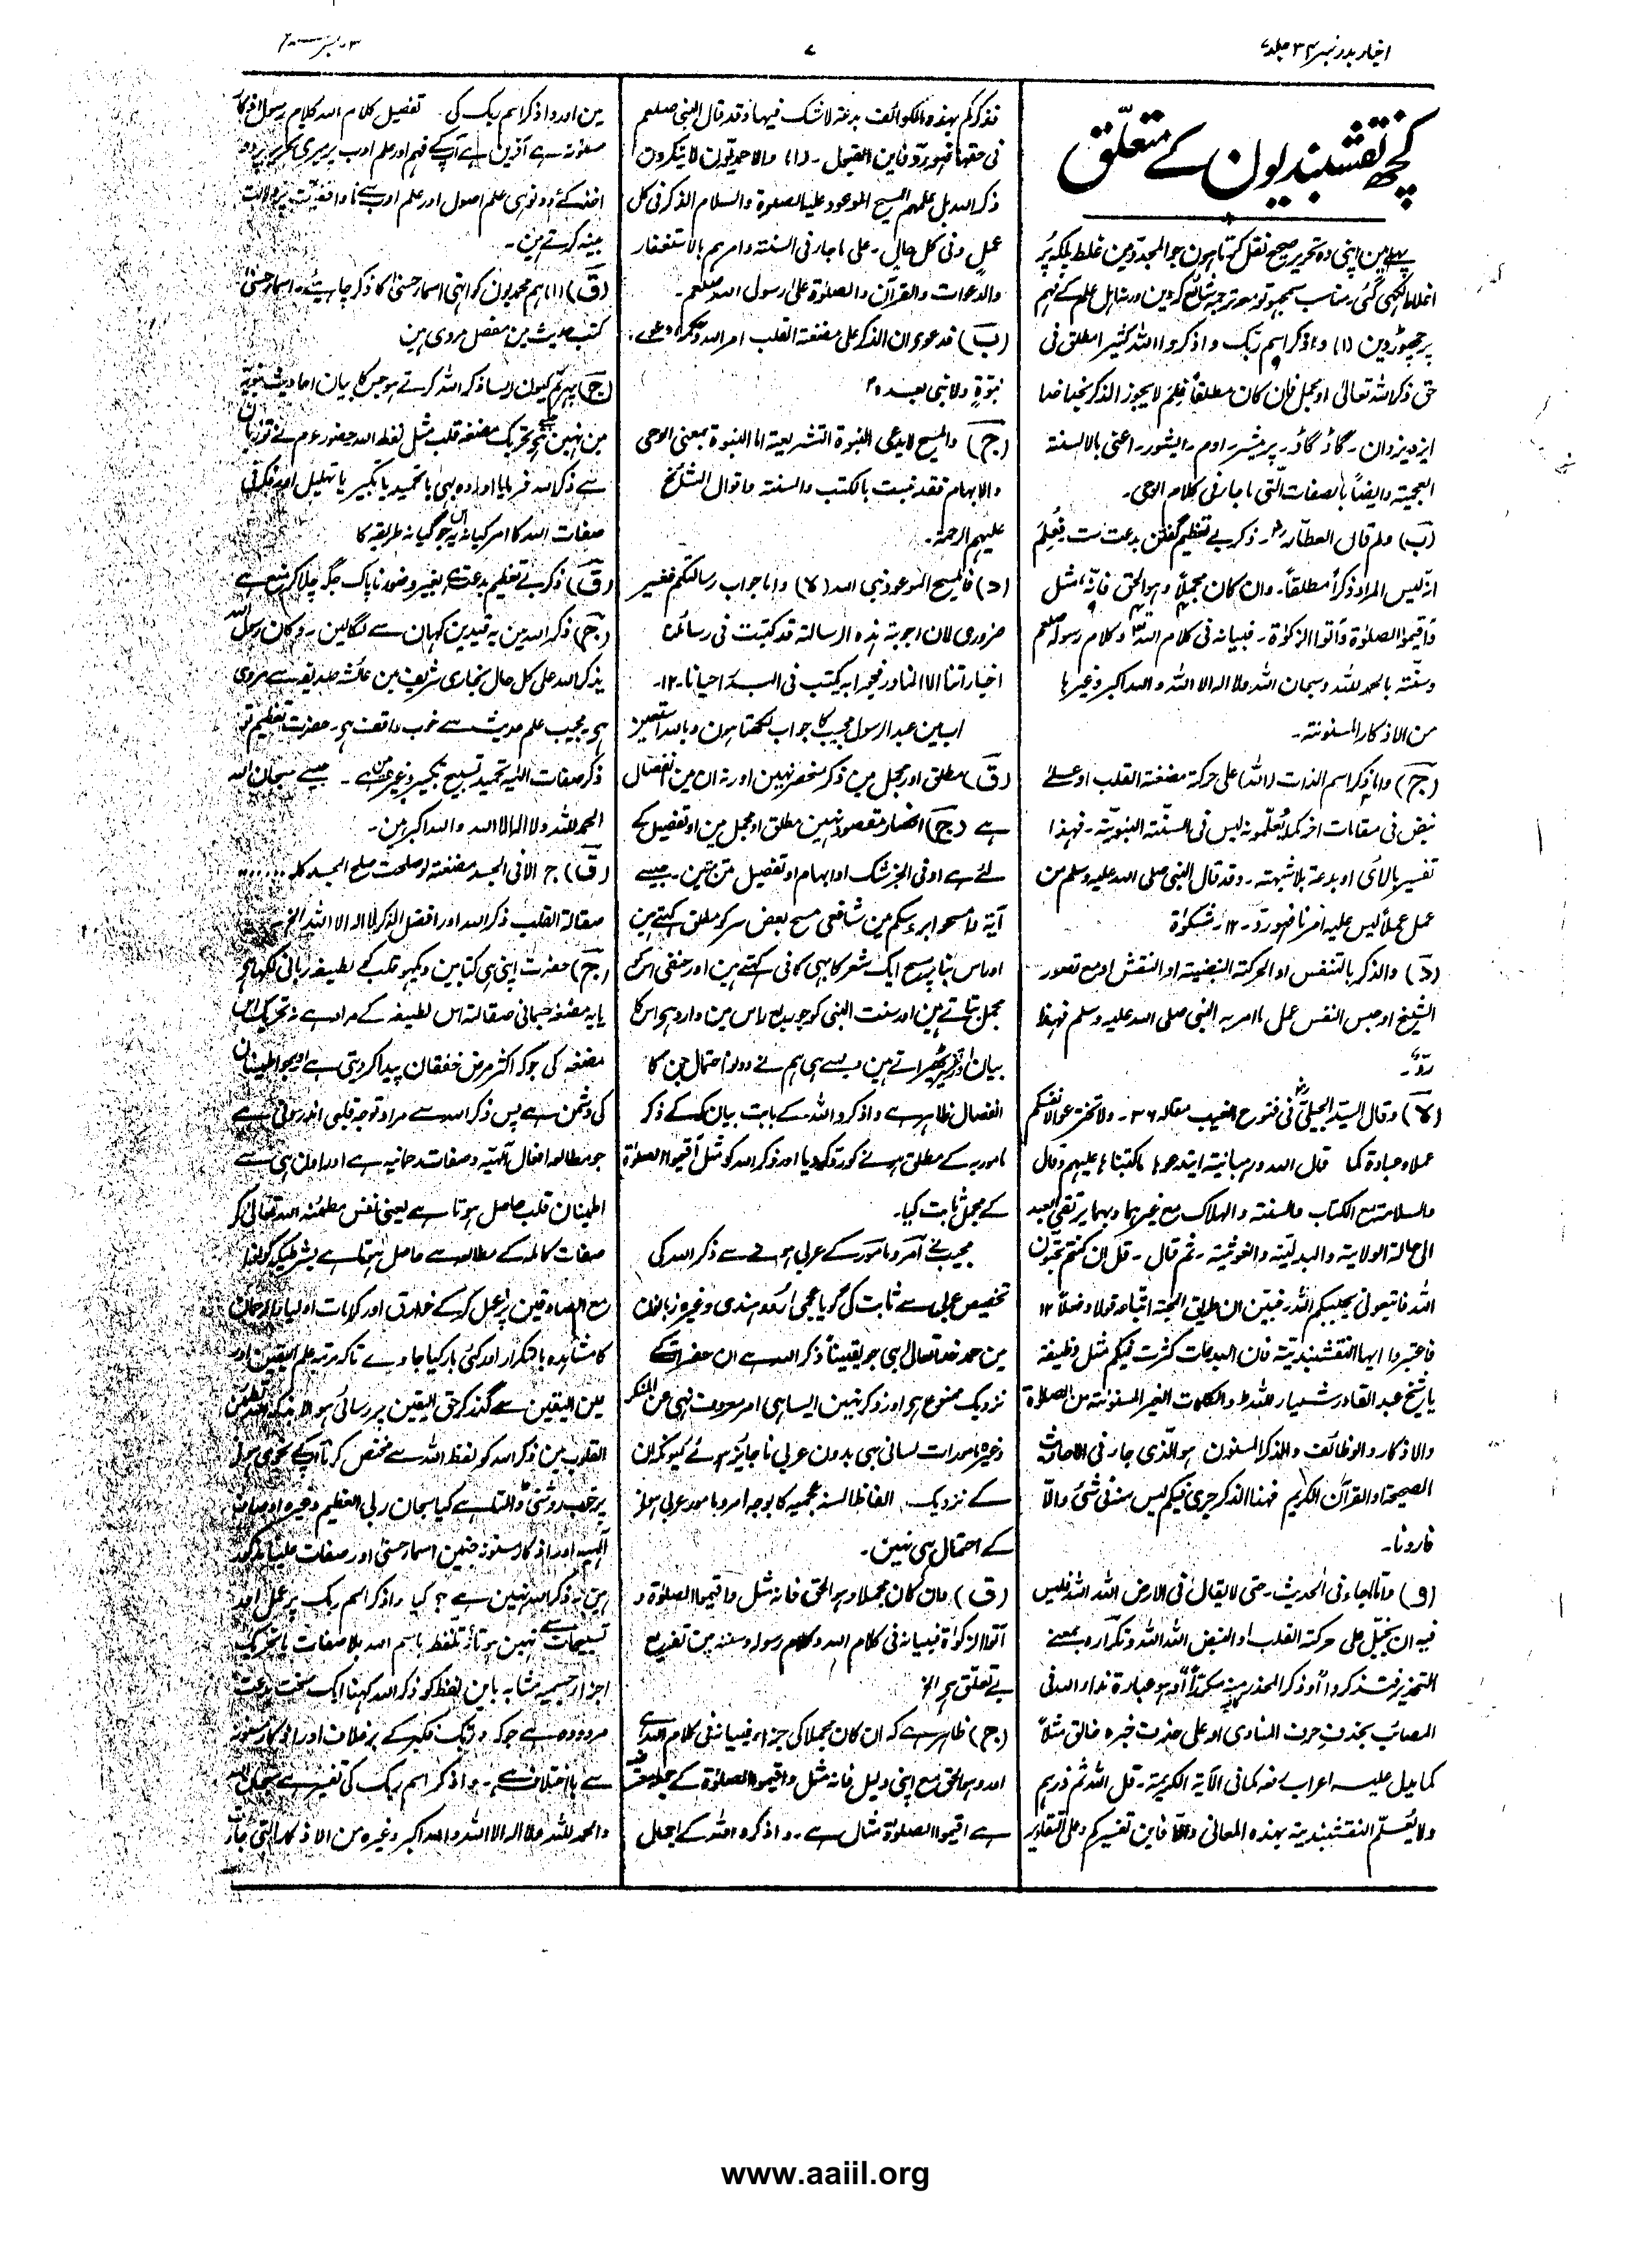 اخبار بدر نمبر ۳۴ جلد ۷
۷
کچھ نقشبندیون کے متعلّق
پہلے مین اپنی وہ تحریر صحیح نقل کرتا ہون جو المجدّد مین غلط بلکہ پُر
اغلاط لکھی گئی۔ مناسب سمجھو تو معہ ترجمہ شائع کر دین ورنہ اہل علم کے فہم
پر چھوڑ دین (۱) واذکر اسم ربک و اذکروا اللہ کثیرا مطلق فی
حق ذکر اللہ تعالیٰ او مجمل فان کان مطلقاً فلِمَ لا یجوز الذکر بخدا خدا
ایزد یزدان۔ گاڈ گاڈ۔ پرمیشر۔ اوم۔ ایشور۔ اعنی بالالسنة
العجمیة وایضاً بالصفات التّی ما جاء فی کلام الوحی۔
(ب) ولم قال العطّار۔ ذکر بے تعظیم گفتن بدعت ست۔ فعُلِمَ
انہ لیس المراد ذکراً مطلقاً۔ وان کان مجملاً وہو الحق فانّہ مثل
وَاقیموا الصلوٰة وَآتوا الزکوٰة۔ فبیانہ فی کلام اللہ و کلام رسولہ صلعم
وسنّتہ بالحمد للہ و سبحان اللہ ولا الہ الا اللہ و اللہ اکبر وغیرہا
من الاذکار المسنونة۔
(ج) واما ذکر اسم الذات (اللہ) علی حرکة مضغة القلب او علے
نبض فی مقامات اخر کما تُعلّمونہ لیس فی السنّة النبویّة۔ فہذا
تفسیر بالرأی او بدعة بلا شبہة۔ وقد قال النبی صلی اللہ علیہ وسلم من
عمل عملاً لیس علیہ امرنا فہو ردّ۔ ۱۲۔ مشکوٰة
(د) والذکر بالتنفس او الحرکة النبضیة او النقش او مع تصور
الشیخ او حبس النفس عمل ما امر بہ النبی صلی اللہ علیہ وسلم فہذا
ردّ۔
(ہ) وقال السیّد الجیلیؒ فی فتوح الغیب مقالہ ۳۶۔ ولا تخترعوا لانفسکم
عملا و عبادة کما قال اللہ ورہبانیة ابتدعوہا ما کتبناہا علیہم وقال
والسلامة مع الکتاب والسنة والہلاک مع غیرہما وبہما یرتقی العبد
الی حالة الولایة والبدلیّة والغوثیة۔ ثم قال۔ قل ان کنتم تحبّون
اللہ فاتبعونی یحببکم اللہ فبیّن ان طریق المحبة اتباعہ قولا وفعلاً ۱۲
فاعتبروا ایہا النقشبندیّة فان البدعات کثرت فیکم مثل وظیفة
یا شیخ عبد القادر شیئا للہ والکلمات الغیر المسنونة من الصلاة
والاذکار والوظائف والذکر المسنون ہو الّذی جاء فی الاحادیث
الصحیحة او القرآن الکریم فہذا الذکر جری فیکم لیس منہ فی شیٔ والّا
فارونا۔
(و) وامّا ما جاء فی الحدیث۔ حتی لا یقال فی الارض اللہ اللہ فلیس
فیہ ان یخیّل علی حرکة القلب او النبض اللہ اللہ و تکرارہ بمعنے
المصائب بحذف حرف المنادی او علی حذف خبرہ خالق مثلاً
کما یدل علیہ اعراب رفعہ کما فی الآیة الکریمة۔ قل اللہ ثم ذرہم
ولا یُعلّم النقشبندیة بہذہ المعانی والّا فاین تفسیرکم و علی التقادیر
فذکرکم بہذہ الکوائف بدعة لا شک فیہا وقد قال النبی صلعم
فی حقہا فہو ردّ فاین القبول۔ (۱) والاحمدیّون لا ینکرون
ذکر اللہ بل علّمہم المسیح الموعود علیہ الصلوة والسلام الذکر فی کل
عملٍ وفی کل حالٍ۔ علی ما جاء فی السنة وامرہم بالاستغفار
والدعوات والقرآن والصلوٰة علیٰ رسول اللہ صلعم۔
(ب) فدعوی ان الذکر علی مضغة القلب امر اللہ
نبوّةٍ ولا نبی بعدہ ؟
(ج) والمسیح لا یدعی النبوة التشریعیة اما النبوة بمعنی الوحی
والالہام فقد ثبت بالکتب والسنة واقوال المشائخ
علیہم الرحمة۔
(د) فالمسیح الموعود نبی اللہ (ہ) واما جواب رسالتکم فغیر
ضروری لان اجوبة ہذہ الرسالة قد کتبت فی رسائلنا
اخباراتنا الا النادر فجوابہ یکتب فی البدر احیانا۔ ۱۲۔
اب مین عبد الرسول مجیب کا جواب لکھتا ہون وباللہ استعین
(ق) مطلق اور مجمل مین ذکر منحصر نہین اور نہ ان مین انفصال
ہے (ج) انحصار مقصود نہین مطلق او مجمل مین او تفصیل کے
لئے ہے او فی الخبر شک او ابہام او تفصیل مین ہین۔ جیسے
آیة وامسحوا برءوسکم مین شافعی مسح بعض سر کو مطلق کہتے ہین
اور اس بنا پر مسح ایک شعر کا بھی کافی کہتے ہین اور حنفی اس کو
مجمل بتاتے ہین اور سنت النبی کو جو ربع راس مین وارد ہو اس کا
بیان اور تفسیر ٹھہراتے ہین ویسے ہی ہم نے دو احتمال جن کا
انفصال ظاہر ہے واذکروا اللہ کے بابت بیان کر کے ذکر
مامور بہ کے مطلق ہونے کو رد کر دیا اور ذکر اللہ کو مثل اَقیموا الصلوٰة
کے مجمل ثابت کیا۔
مجیب نے آمر و مامور کے عربی ہونے سے ذکر اللہ کی
تخصیص عربی سے ثابت کی گویا عجمی اردو ہندی وغیرہ زبانون
مین حمد خدا تعالیٰ بھی جو یقیناً ذکر اللہ ہے ان حضرت کے
نزدیک ممنوع ہو اور ذکر نہین ایسا ہی امر معروف نہی عن المنکر
وغیرہ مامورات لسانی بھی بدون عربی ناجائز ہوئے کیونکہ ان
کے نزدیک الفاظ السنہ عجمیہ کا بوجہ امر و مامور عربی ہونے
کے احتمال ہی نہین۔
(ق) وان کان مجملا وہو الحق فانہ مثل واقیموا الصلوٰة و
آتوا الزکوٰة فبیانہ فی کلام اللہ و کلام رسولہ و سنتہ مین تفریع
بے تعلق ہے الخ
(ج) ظاہر ہے کہ ان کان مجملا کی جزاء فبیانہ فی کلام اللہ ہے
اور وہو الحق مع اپنی دلیل فانہ مثل واقیموا الصلوٰة کے جملہ معترضہ
ہے اقیموا الصلوٰة مثال ہے۔ واذکروا اللہ کے اجمال
مین اور واذکر اسم ربک کی۔ تفصیل کلام اللہ کلام رسول اذکار
مسنونہ ہے آفرین ہے آپ کے فہم اور علم ادب پر میری تحریر پر دو
اخذ کئے دونو ہی علم اصول اور علم ادب سے ناواقفیّت پر دلالت
بینہ کرتے ہین۔
(ق) (۱) ہم محمدیون کو انہی اسماء حسنیٰ کا ذکر چاہیئے۔ اسماء حسنیٰ
کتب حدیث مین مفصل مروی ہین
(ج) پھر تم کیون ایسا ذکر اللہ کرتے ہو جس کا بیان احادیث نبویّہ
مین نہین جیسے تحریک مضغہ قلب مثل لفظ اللہ حضور عم نے تو زبان
سے ذکر اللہ فرمایا اور وہ بھی یا تحمید یا تکبیر یا تہلیل اور فکر فی
صفات اللہ کا امر کیا نہ اس جوگیانہ طریقہ کا
(ق) ذکر بے تعظیم بدعت ہے بغیر وضو ناپاک جگہ چلا کر منع ہے
(ج) ذکر اللہ مین یہ قیدین کہان سے لگا لین۔ وکان رسول اللہ
یذکر اللہ علی کل حال بخاری شریف مین عائشہ صدیقہ سے مروی
ہے۔ مجیب علم حدیث سے خوب واقف ہے۔ حضرت تعظیم تو
ذکر صفات الٰہیہ تحمید تسبیح تکبیر وغیرہ مین ہے۔ جیسے سبحان اللہ
الحمد للہ ولا الہ الا اللہ واللہ اکبر مین۔
(ق) ج الا فی الجسد مضغة لو صلحت صلح الجسد کلہ . . . . . . .
صقالة القلب ذکر اللہ اور افضل الذکر لا الہ الا اللہ الخ
(ج) حضرت اپنی ہی کتابین دیکھو قلب کے لطیفہ ربانی لکھا ہے
یا یہ مضغہ جسمانی صقالة اس لطیفہ کے مراد ہے نہ تحریک اس
مضغہ کی جو کہ اکثر مرض خفقان پیدا کر دیتی ہے اور جو اطمینان
کی دشمن ہے پس ذکر اللہ سے مراد توجہ قلبی اندرونی ہے
جو مطالعہ افعال الٰہیہ و صفات رحمانیہ ہے اور اون ہی سے
اطمینان قلب حاصل ہوتا ہے یعنی نفس مطمئنہ اللہ تعالیٰ کو
صفات کاملہ کے مطالعہ سے حاصل ہوتا ہے بشرطیکہ کونوا
مع الصادقین پر عمل کر کے خوارق اور کرامات اولیاء الرحمان
کا مشاہدہ بالتکرار اور کئی بار کیا جاوے تا کہ مرتبہ علم الیقین اور
عین الیقین سے گذر کر حق الیقین پر رسائی ہو الا بذکر اللہ تطمئن
القلوب مین ذکر اللہ کو لفظ اللہ سے مختص کرنا آپ کے نحوی ہونے
پر خوب روشنی ڈالتا ہے کیا سبحان ربی العظیم وغیرہ اوصاف
الٰہیہ اور اذکار مسنونہ جنمین اسماء حسنیٰ اور صفات علیا مذکور
ہین یہ ذکر اللہ نہین ہے؟ کیا واذکر اسم ربک پر عمل اور
تسبیحات سے نہین ہوتا؟ تلفظ باسم اللہ بلا صفات یا تحریک
اجزاء جسمیہ مشابہ باین لفظ کو ذکر اللہ کہنا ایک سخت بدعت
مردودہ ہے جو کہ وربک فکبر کے برخلاف اور اذکار مسنونہ
سے بالاختلاف ہے۔ واذکر اسم ربک کی تفسیر ہے سبحان اللہ
والحمد للہ ولا الہ الا اللہ واللہ اکبر وغیرہ من الاذکار التی جاءت
www.aaiil.org